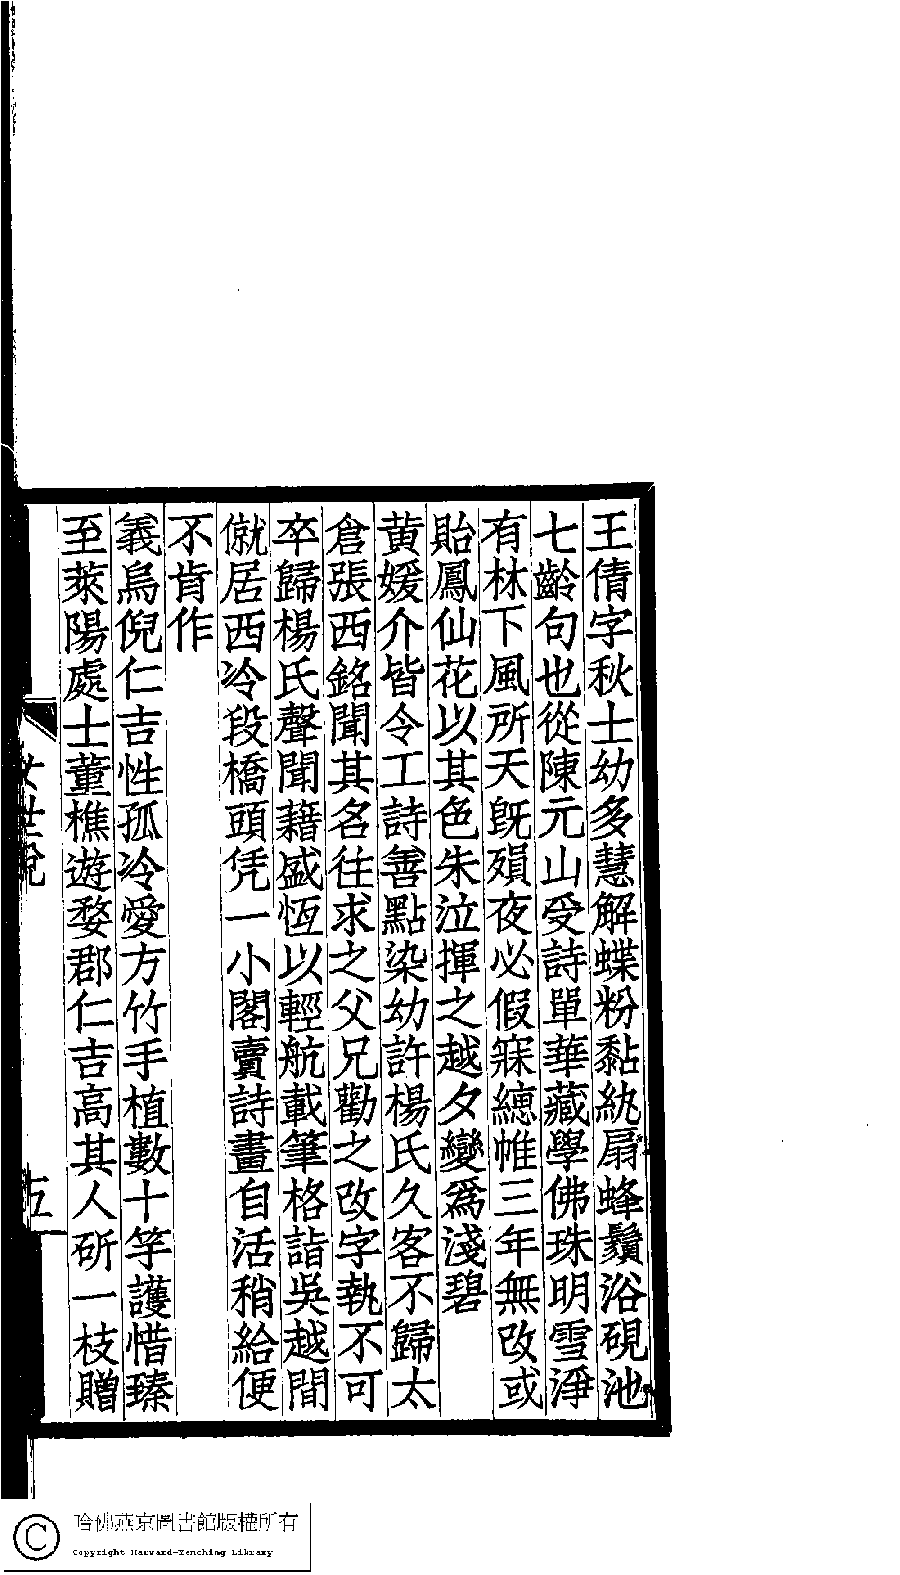 王倩字秋士幼多慧解蝶粉黏紈扇蜂鬚浴硯池
七齡句也從陳元山受詩單華藏學佛珠明雪淨
有林下風所天旣殞夜必假寐繐帷三年無改或
貽鳳仙花以其色朱泣揮之越夕變爲淺碧
黄媛介皆令工詩善點染幼許楊氏久客不歸太
倉張西銘聞其名往求之父兄勸之改字執不可
卒歸楊氏聲聞藉盛恆以輕航載筆格詣吳越間
僦居西泠段橋頭凭一小閣賣詩畫自活稍給便
不肯作
義烏倪仁吉性孤冷愛方竹手植數十竿護惜臻
至萊陽處士董樵遊婺郡仁吉高其人斫一枝贈
女世說
五
哈佛燕京圖書館版權所有
Copyright Harvard-Yenching Library